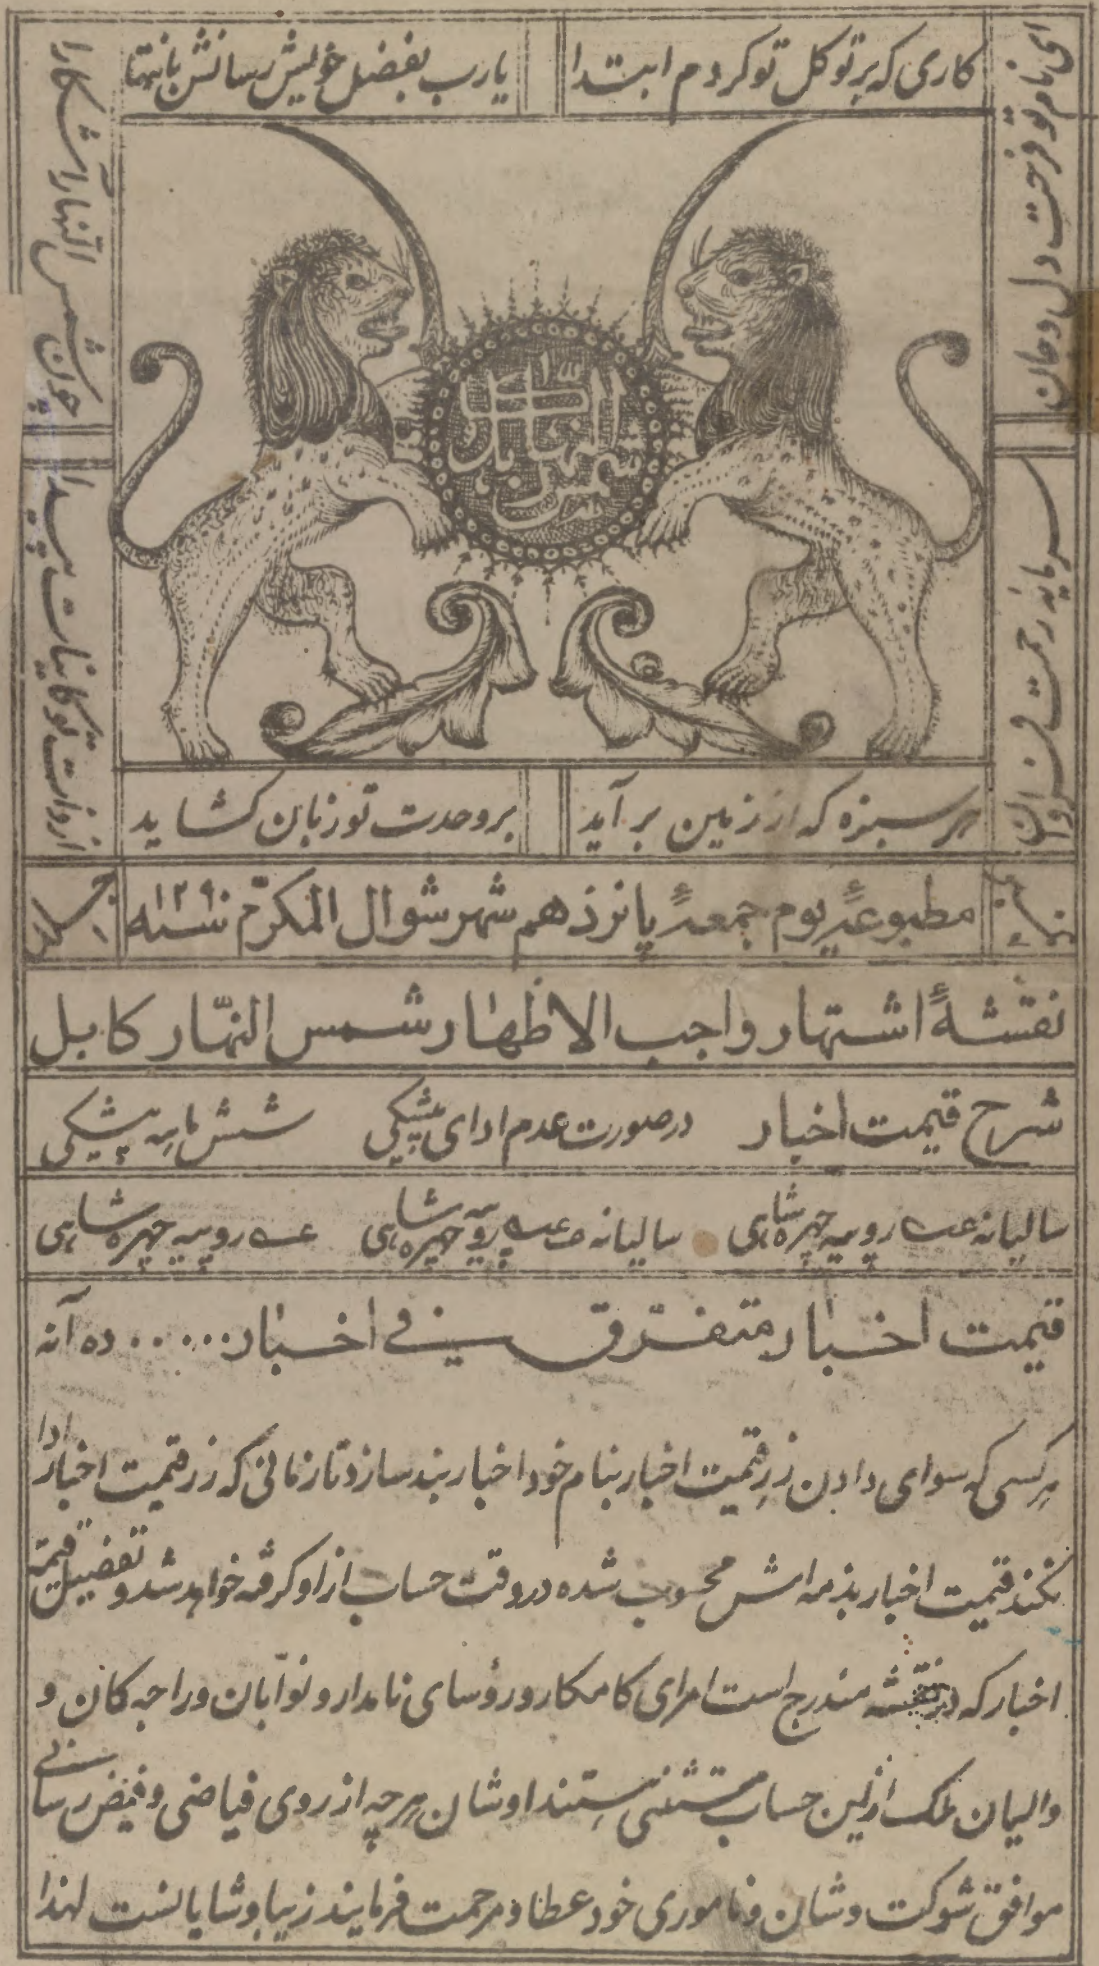 کاری که بر توکل تو کردم ابتدا
یارب بفضل خویش رسانش بانتها
ای نام تو فرحت دل و جان
سرمایهٔ رحمت فراوان
چون شمس النهار آشکارا
از ذات تو کاینات پیدا
شمس النهار کابل
هر سبزه که از زمین برآید
بر وحدت تو زبان کشاید
مطبوعهٔ یوم جمعهٔ پانزدهم شهر شوال المکرّم سنه ۱۲۹۰
نقشهٔ اشتهار واجب الاظهار شمس النهّار کابل
شرح قیمت اخبار
در صورت عدم ادای پیشکی
شش ماهه پیشکی
سالیانه روپیه چهره شاهی
سالیانه روپیه چهره شاهی
روپیه چهره شاهی
قیمت اخبار متفرق فی اخبار ..... ده آنه
هر کسی که سوای دادن زر قیمت اخبار بنام خود اخبار بند سازد تا زمانی که زر قیمت اخبار ادا
نکند قیمت اخبار بذمه اش محسوب شده در وقت حساب از او کرفته خواهد شد و تفضیل قیمة
اخبار که در نقشه مندرج است امرای کامکار و رؤسای نامدار و نوّابان و راجه کان و
والیان ملک ازین حساب مستثنی هستند اوشان هرچه از روی فیاضی و فیض رسانی
موافق شوکت و شان و ناموری خود عطا و مرحمت فرمایند زیبا و شایانست لهذا